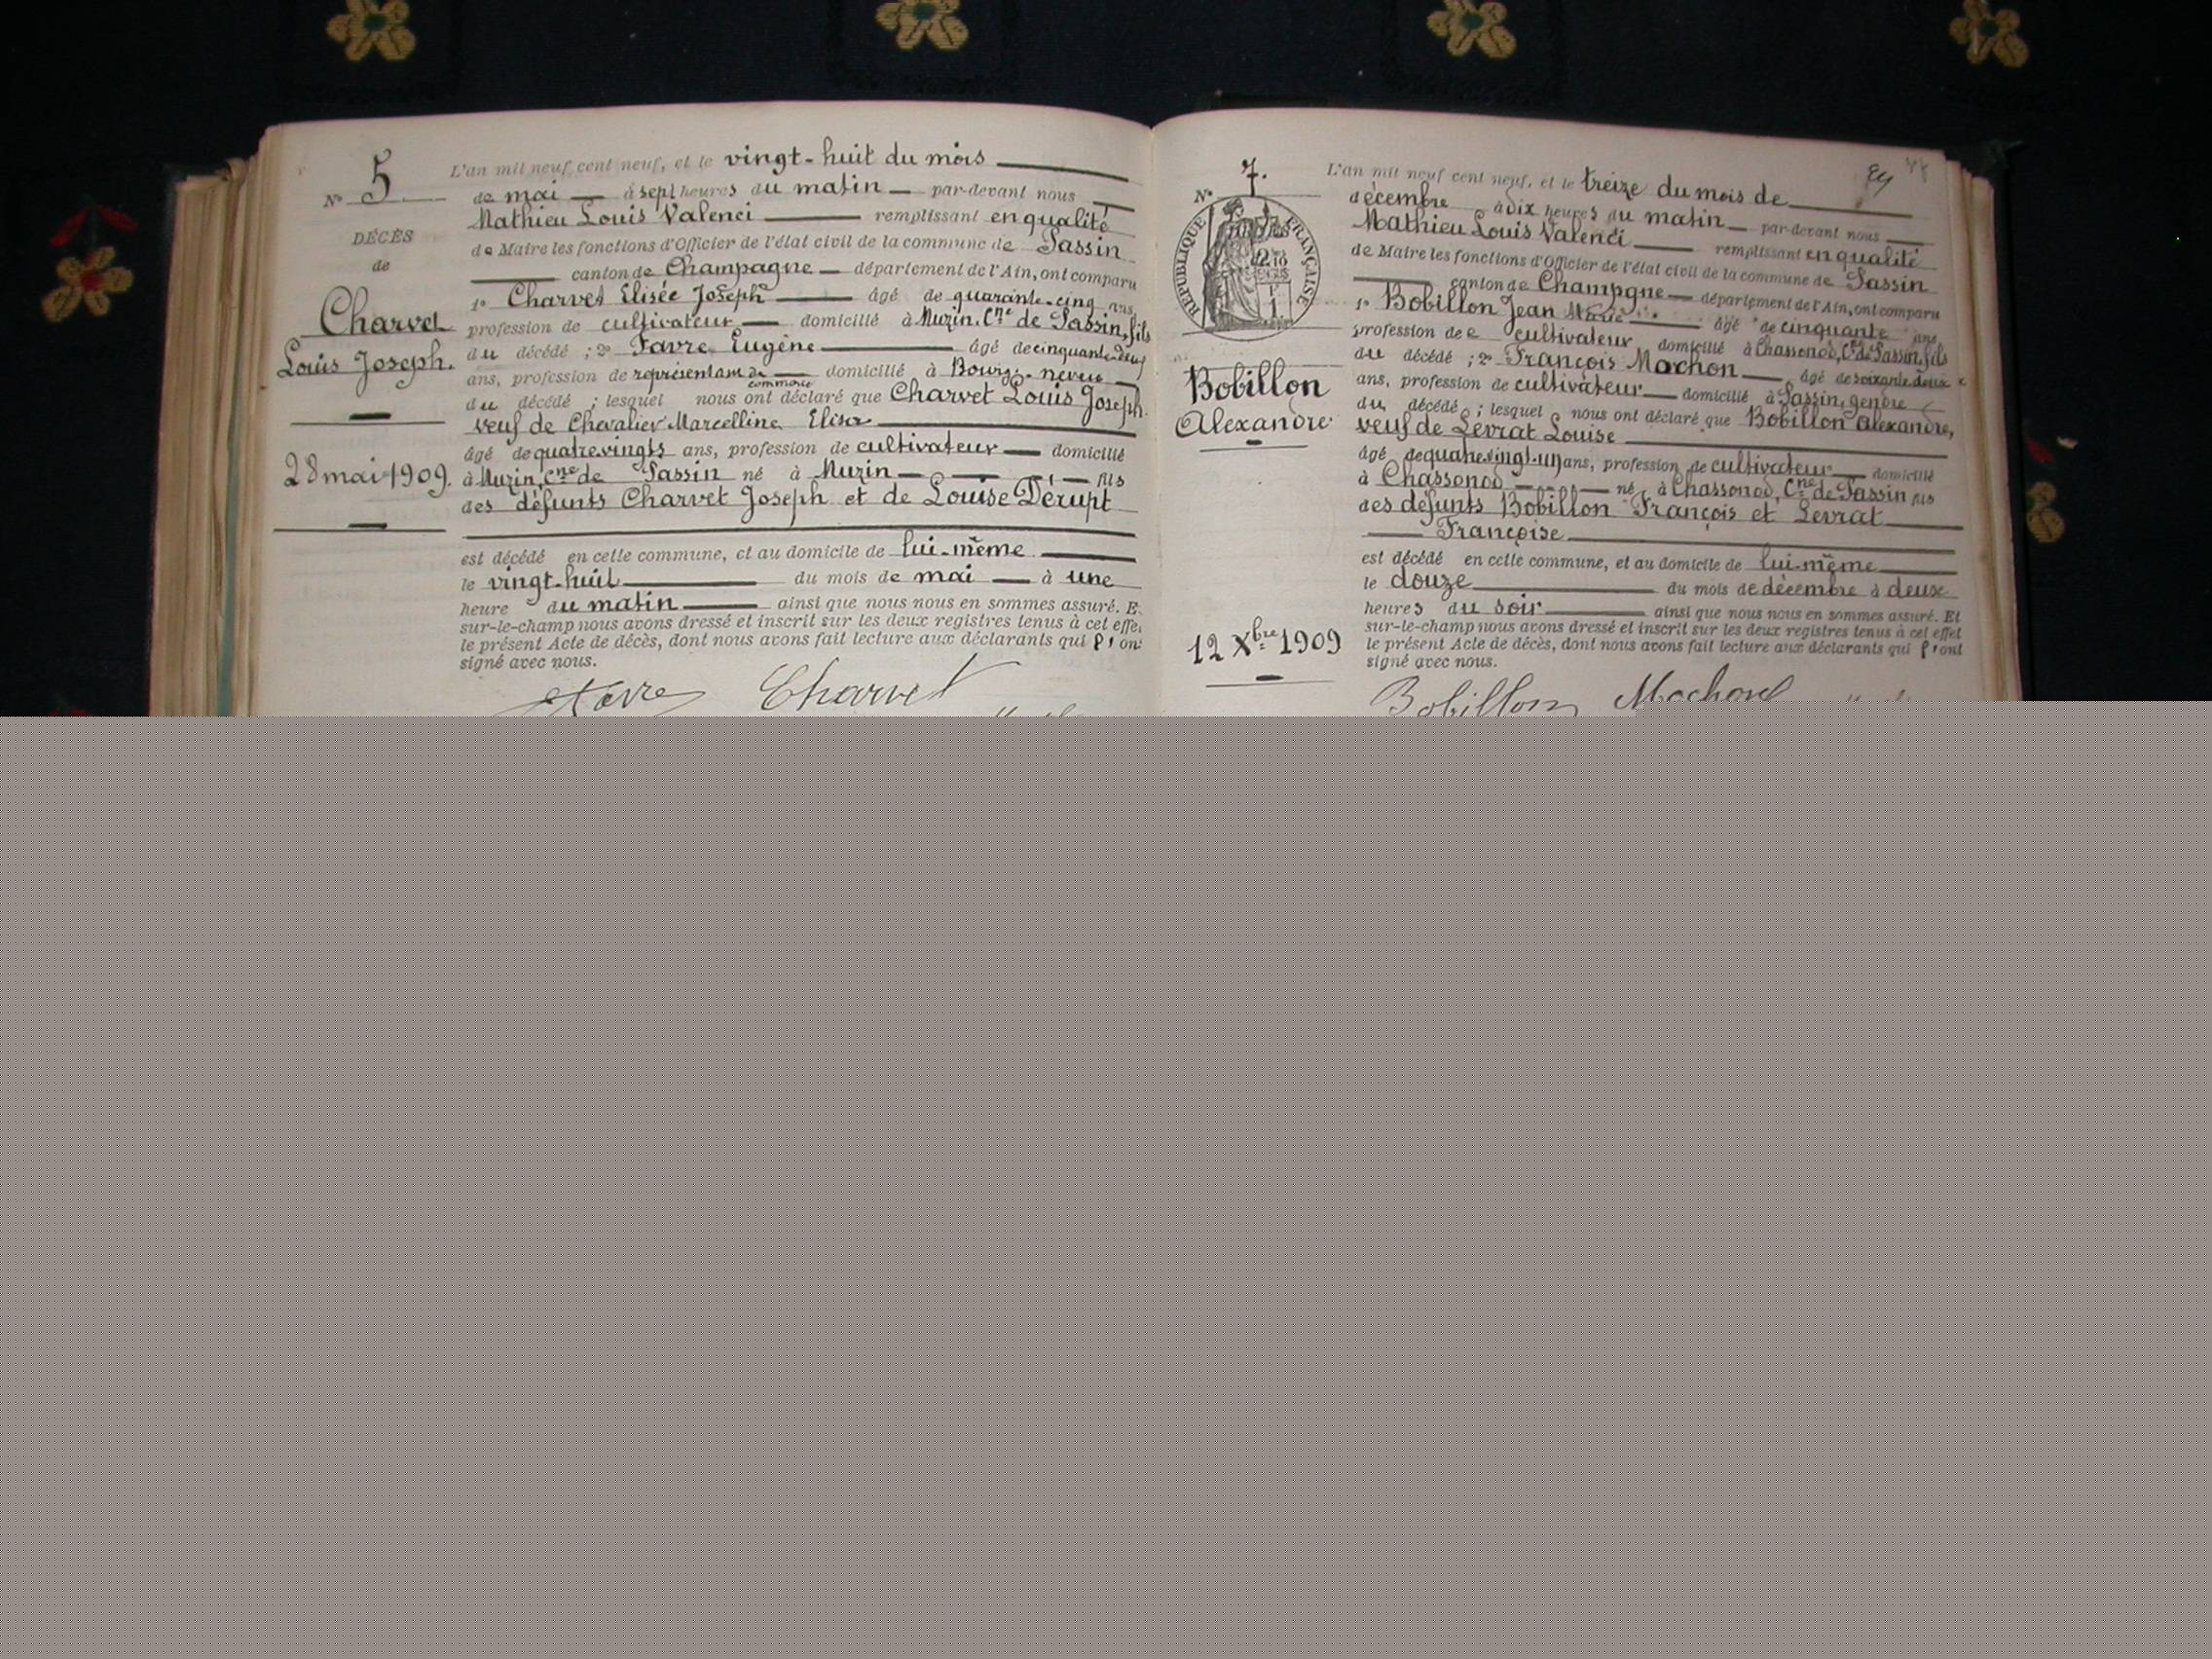 N° 5
DÉCÈS
de
Charvet
Louis Joseph.
28 mai 1909.
L'an mil neuf cent neuf, et le vingt-huit du mois
de mai à sept heures du matin par-devant nous
Mathieu Louis Valenci remplissant en qualité
de Maire les fonctions d'Officier de l'état civil de la commune de Passin
canton de Champagne département de l'Ain, ont comparu
1° Charvet Elisée Joseph âgé de quarante-cinq ans,
profession de cultivateur domicilié à Muzin, Cne de Passin, fils
du décédé ; 2° Favre Eugène âgé de cinquante-deux
ans, profession de représentant de commerce domicilié à neveu
du décédé ; lesquel nous ont déclaré que Charvet Louis Joseph.
veuf de Chevalier Marcelline Elisa
âgé de quatre-vingts ans, profession de cultivateur domicilié
à Muzin, Cne de Passin né à Muzin fils
des défunts Charvet Joseph et de Louise Dérupt
est décédé en cette commune, et au domicile de lui-même
le vingt-huit du mois de mai à une
heure du matin ainsi que nous nous en sommes assuré. E
sur-le-champ nous avons dressé et inscrit sur les deux registres tenus à cet effe
le présent Acte de décès, dont nous avons fait lecture aux déclarants qui l'ont
signé avec nous.
Favre Charvet
N° 7.
RÉPUBLIQUE FRANÇAISE
Bobillon
Alexandre
12 Xbre 1909
L'an mil neuf cent neuf, et le treize du mois de
décembre à dix heures du matin par-devant nous
Mathieu Louis Valenci remplissant en qualité
de Maire les fonctions d'Officier de l'état civil de la commune de Passin
canton de Champgne département de l'Ain, ont comparu
1° Bobillon Jean Marie âgé de cinquante ans,
profession de cultivateur domicilié à Chassonod, Cne de Passin, fils
du décédé ; 2° François Mochon âgé de soixante-deux
ans, profession de cultivateur domicilié à Passin, gendre
du décédé ; lesquel nous ont déclaré que Bobillon Alexandre,
veuf de Levrat Louise
âgé de quatre-vingt-un ans, profession de cultivateur domicilié
à Chassonod né à Chassonod, Cne de Passin fils
des défunts Bobillon François et Levrat
Françoise
est décédé en cette commune, et au domicile de lui-même
le douze du mois de décembre à deux
heures du soir ainsi que nous nous en sommes assuré. Et
sur-le-champ nous avons dressé et inscrit sur les deux registres tenus à cet effet
le présent Acte de décès, dont nous avons fait lecture aux déclarants qui l'ont
signé avec nous.
Bobillon Mochon